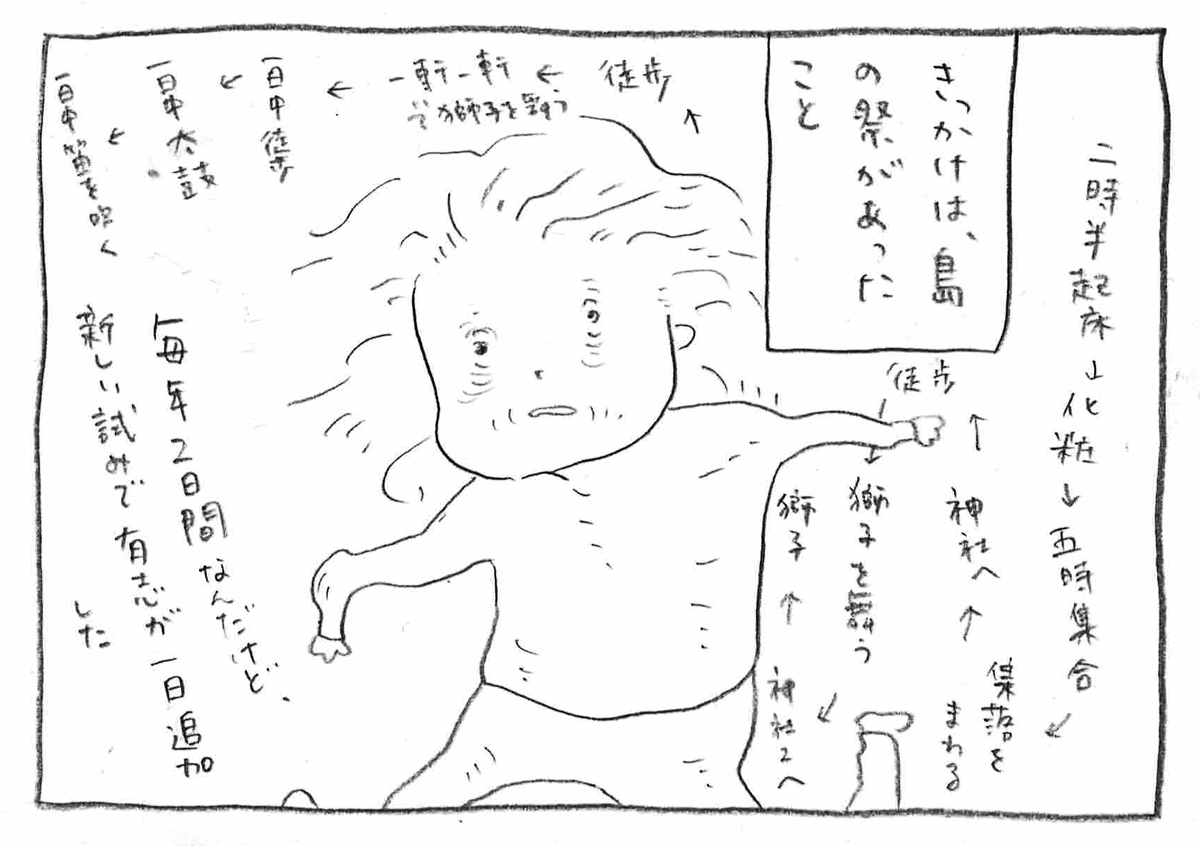 きっかけは、島
の祭があった
こと
二時半起床
↓
化粧
↓
五時集合
↙
集落を
まわる
↑
神社へ
↑
徒歩
↓
獅子を舞う
↙
神社2へ
↑
獅子
↑
徒歩
←
一軒一軒
で獅子を舞う
←
一日中徒歩
←
一日中太鼓
←
一日中笛を吹く
毎年2日間なんだけど、
新しい試みで有志が一日追加
した